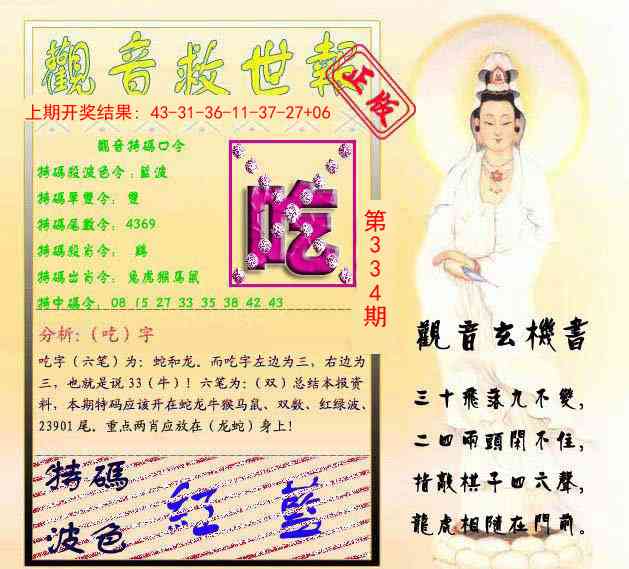 觀音救世報
正版
上期开奖结果：43-31-36-11-37-27+06
觀音特碼口令
特碼殺波色令：藍波
特碼單雙令： 雙
特碼尾數令： 4369
特碼殺肖令： 鷄
特碼出肖令： 兔虎猴马鼠
特中碼令： 08 15 27 33 35 38 42 43
吃
第334期
分析：（吃）字
吃字（六笔）为：蛇和龙．而吃字左边为三，右边为
三，也就是说33（牛）！六笔为：（双）总结本报资
料，本期特码应该开在蛇龙牛猴马鼠、双数、红绿波、
23901尾．重点两肖应放在（龙蛇）身上！
特碼
波色
紅 藍
觀音玄機書
三十飛落九不變，
二四兩頭閑不住，
指敲棋子四六聲，
龍虎相隨在門前。